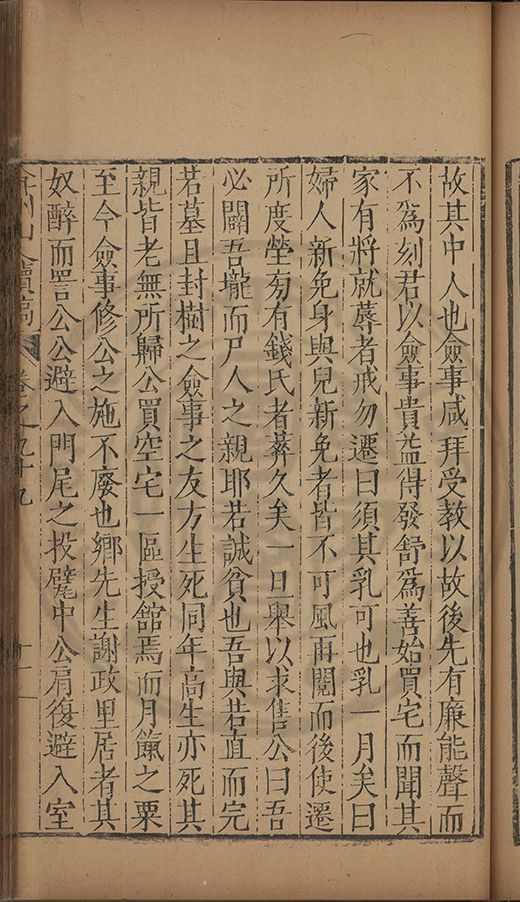 故其中人也僉事咸拜受教以故後先有廉能聲而
不爲刻君以僉事貴益得發舒爲善始買宅而聞其
家有將就蓐者戒勿遷曰須其乳可也乳一月矣曰
婦人新免身與兒新免者皆不可風再閱而後使遷
所度塋旁有錢氏者葬久矣一旦舉以求售公曰吾
必闢吾壠而尸人之親耶若誠貧也吾與若直而完
若墓且封樹之僉事之友方生死同年高生亦死其
親皆老無所歸公買空宅一區授館焉而月餼之粟
至今僉事修公之施不廢也鄉先生謝政里居者其
奴醉而詈公公避入門尾之投甓中公肩復避入室
弇州山人續稿 卷之九十九 十一